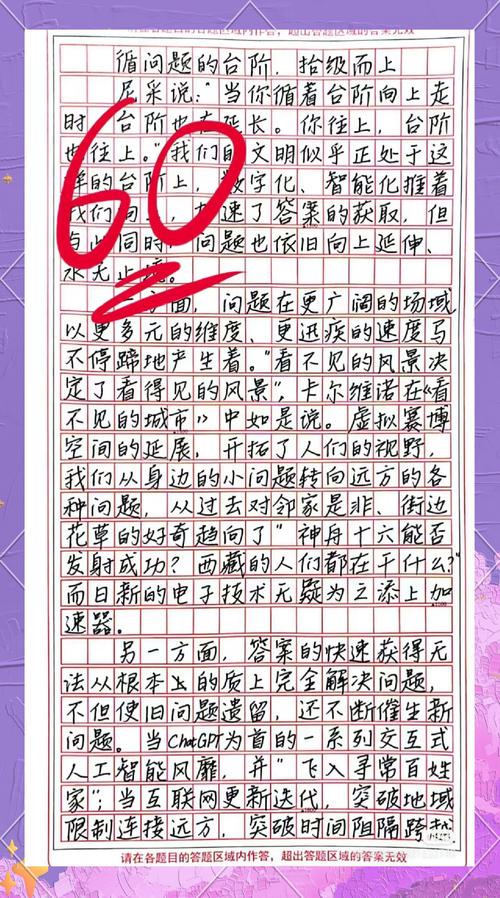 请在各题目的答题区域内作答，超出答题区域的答案无效
循问题的台阶，拾级而上
尼采说："当你循着台阶向上走
时，台阶也在延长。你往上，台阶
也往上。"我们的文明似乎正处于这
的台阶上，数字化、智能化推着
我们向上，加速了答案的获取，但
与此同时，问题也依旧向上延伸、
永无止境。
60
方面，问题在更广阔的场域
以更多元的维度、更迅疾的速度马
不停蹄地产生着。"看不见的风景决
定了看得见的风景"，卡尔维诺在《看
不见的城市》中如是说。虚拟赛博
空间的延展，开拓了人们的视野，
我们从身边的小问题转向远方的各
种问题，从过去对邻家是非、街边
花草的好奇趋向了"神舟十六能否
发射成功？西藏的人们都在干什么？"
而日新的电子技术无疑为之添上加
速器。
另一方面，答案的快速获得无
法从根本上的质上完全解决问题，
不但使旧问题遗留，还不断催生新
问题。当ChatGPT为首的一系列交互式
人工智能风靡，并"飞入寻常百姓
家"；当互联网更新迭代，突破地域
限制连接远方，突破时间阻隔跨越
请在各题目的答题区域内作答，超出答题区域的答案无效